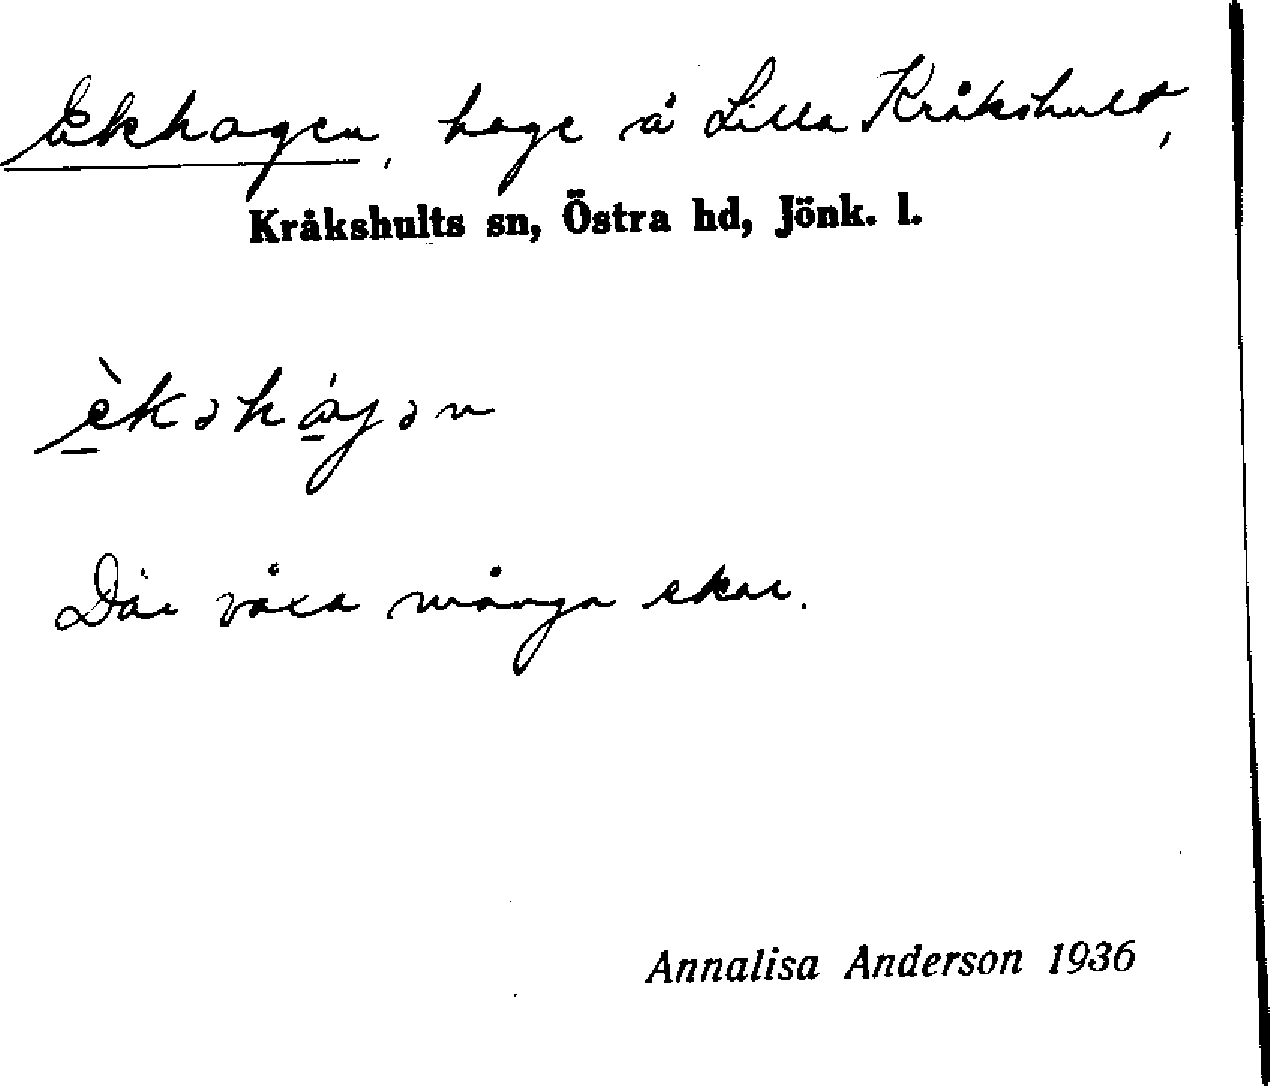 Ekhagen, hage å Lilla Kråkshult,
Kråkshults sn, Östra hd, Jönk. l.
èkəhágən
Där växa många ekar.
Annalisa Anderson 1936